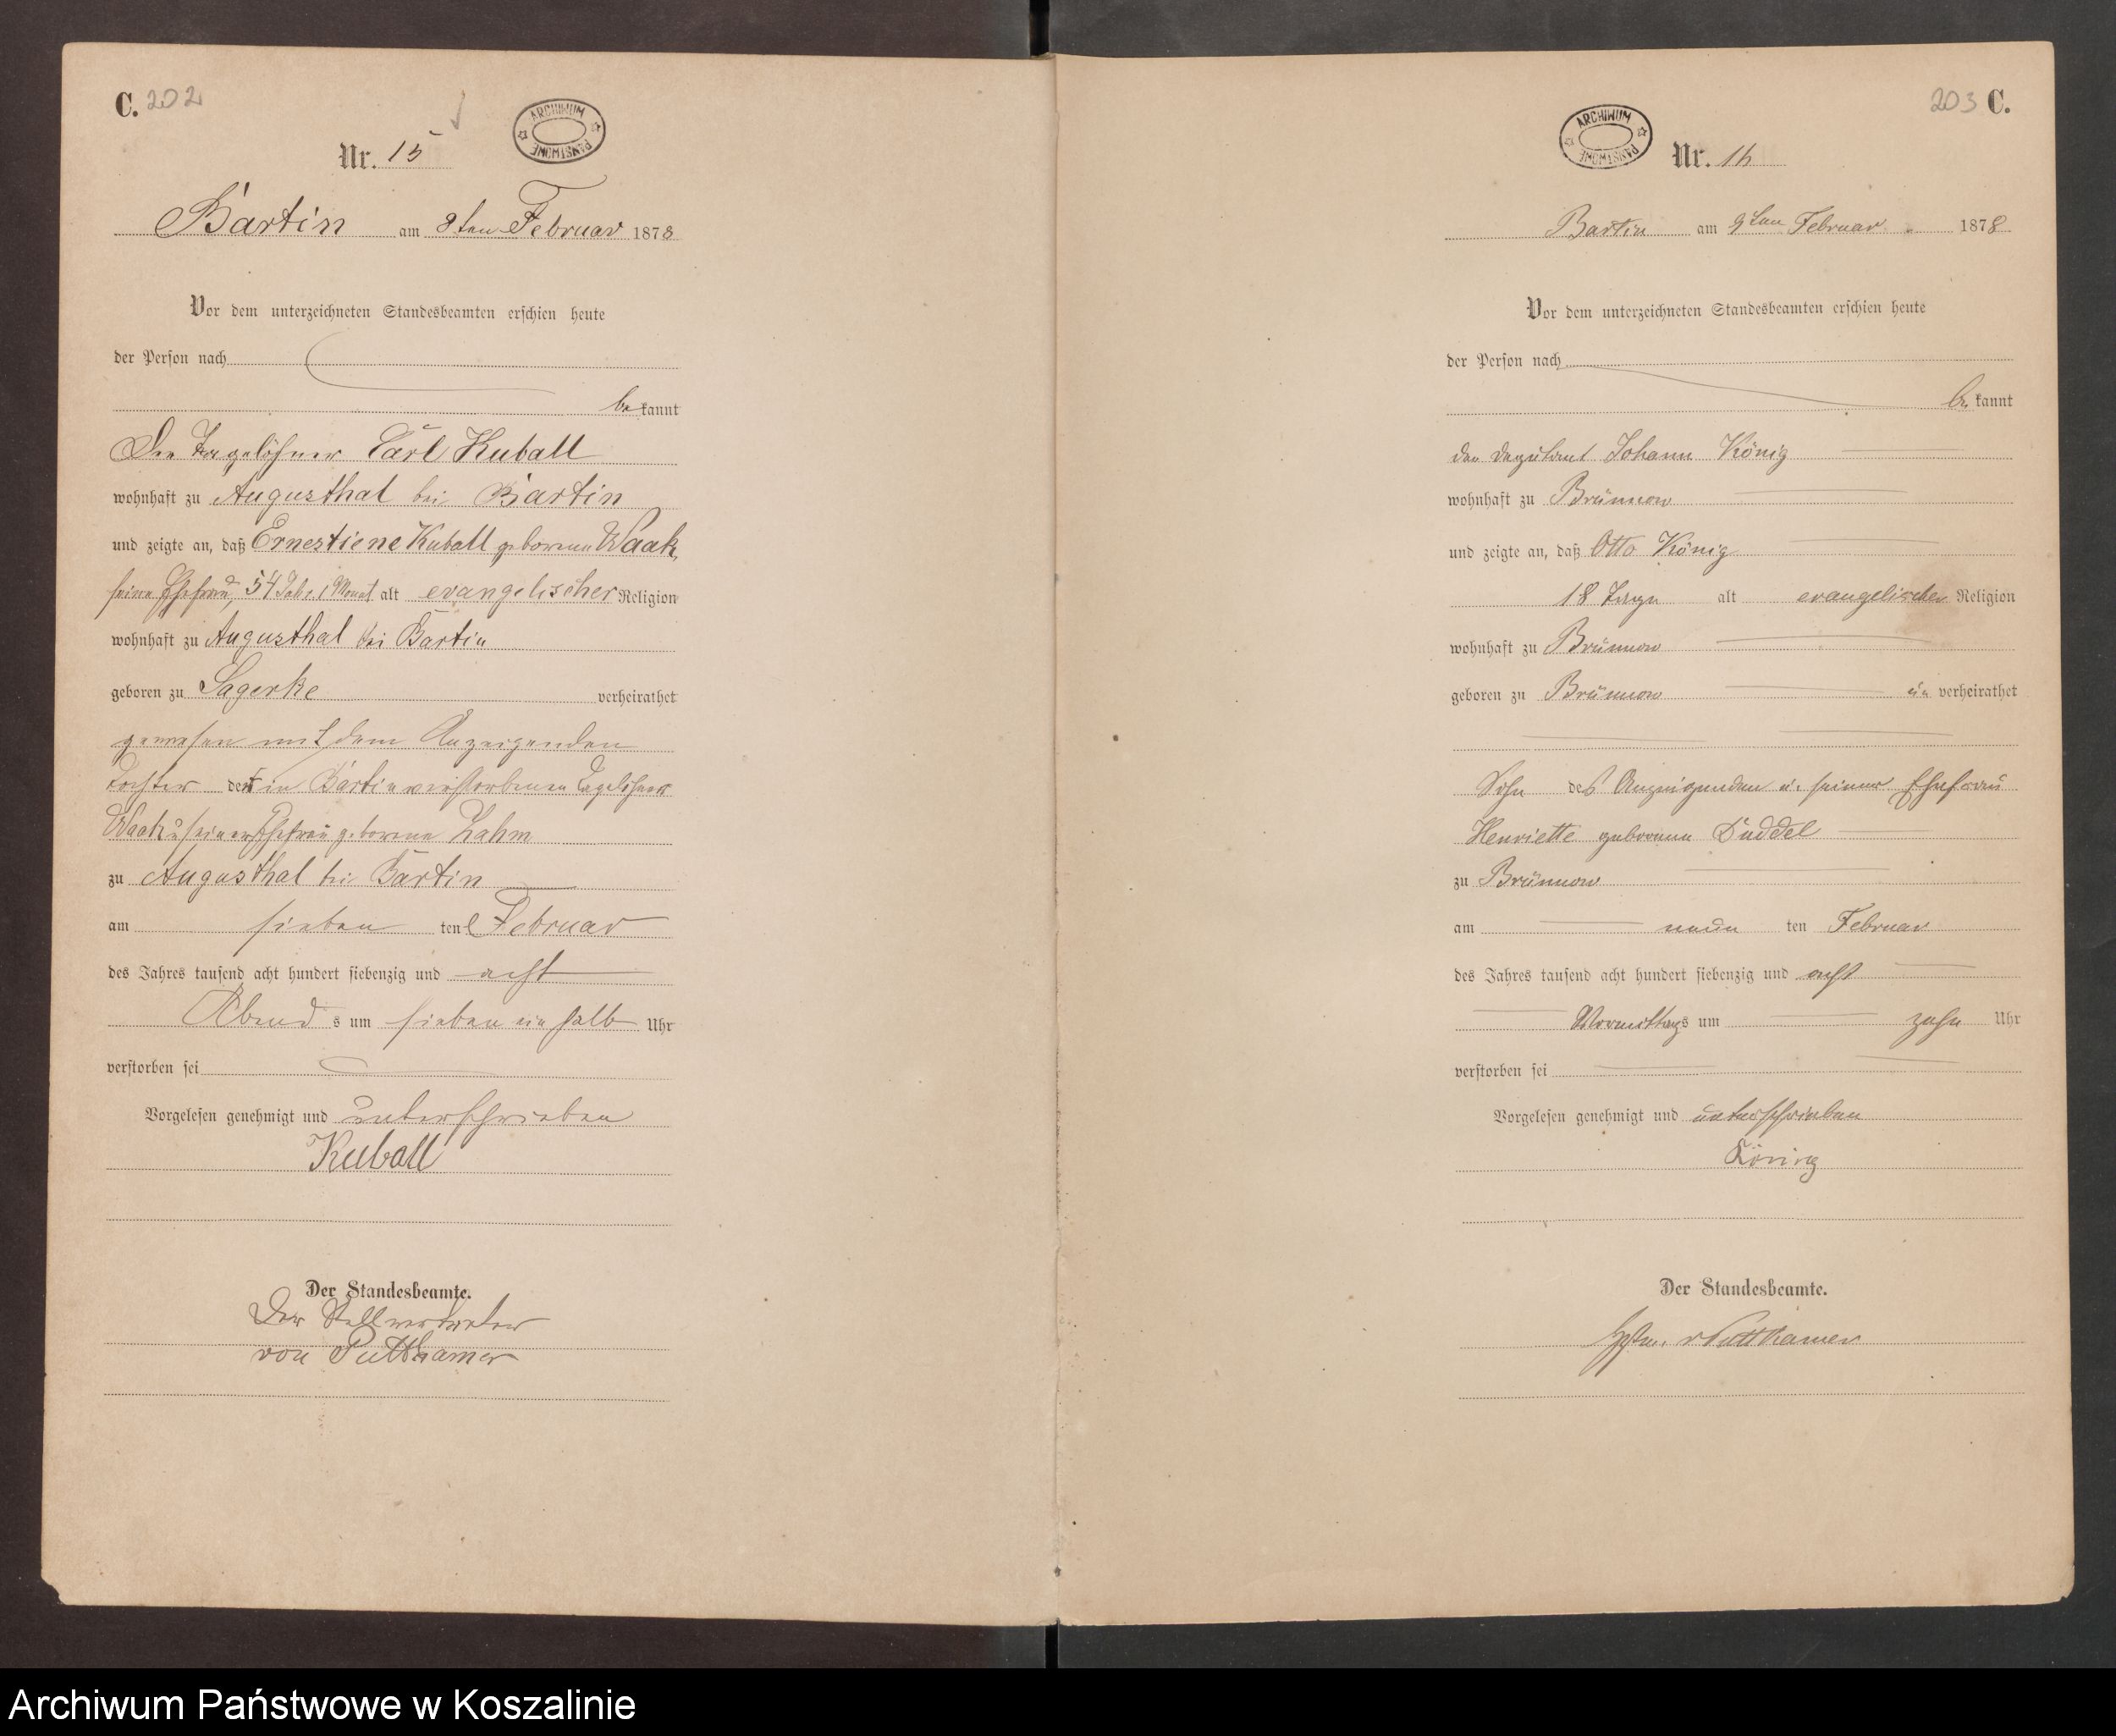 C. 202
Nr. 15
ARCHIWUM PAŃSTWOWE
Bartin am 8ten Februar 1878
Vor dem unterzeichneten Standesbeamten erschien heute
der Person nach
be kannt
Der Tagelöhner Carl Kuball
wohnhaft zu Augusthal bei Bartin
und zeigte an, daß Ernestiene Kuball geborene Waak,
seine Ehefrau, 54 Jahr 1 Monat alt evangelischer Religion
wohnhaft zu Augusthal bei Bartin
geboren zu Sagerke verheirathet
gewesen mit dem Anzeigenden
Tochter des in Bartin verstorbenen Tagelöhner
Waak u seiner Ehefrau geborene Zahm
zu Augusthal bei Bartin
am sieben ten Februar
des Jahres tausend acht hundert siebenzig und acht
Abend s um sieben ein halb Uhr
verstorben sei
Vorgelesen genehmigt und unterschrieben
Kuball
Der Standesbeamte.
Der Stellvertreter
von Puttkamer
203 C.
ARCHIWUM PAŃSTWOWE
Nr. 16
Bartin am 9ten Februar 1878
Vor dem unterzeichneten Standesbeamten erschien heute
der Person nach
be kannt
der Deputant Johann König
wohnhaft zu Brünnow
und zeigte an, daß Otto König
18 Tage alt evangelischer Religion
wohnhaft zu Brünnow
geboren zu Brünnow un verheirathet
Sohn des Anzeigenden u. seiner Ehefrau
Henriette geborene Duddel
zu Brünnow
am neun ten Februar
des Jahres tausend acht hundert siebenzig und acht
Vormittags um zehn Uhr
verstorben sei
Vorgelesen genehmigt und unterschrieben
König
Der Standesbeamte.
v Puttkamer
Archiwum Państwowe w Koszalinie